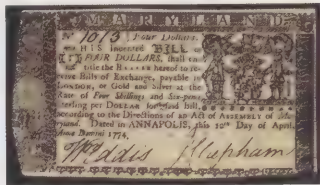 MARYLAND
No 1013 Four Dollars.
THIS Indented BILL of
FOUR DOLLARS, shall en-
title the Bearer hereof to re-
ceive Bills of Exchange, payable in
LONDON, or Gold and Silver at the
Rate of Four Shillings and Six-pence
Sterling per DOLLAR for said Bill,
according to the Directions of an Act of ASSEMBLY of Ma-
ryland. Dated in ANNAPOLIS, this 10th Day of April,
Anno Domini 1774.
Wm Eddis J Clapham